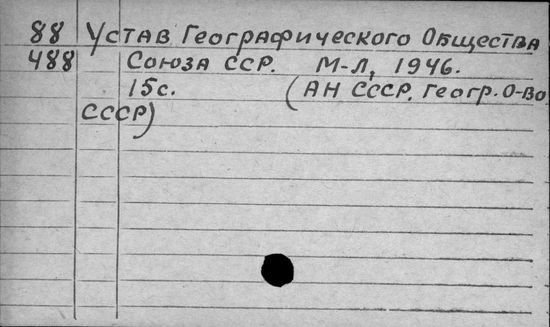 88 Устав Географического Общества
488 Союза ССР. М-Л, 1946.
15с. (АН СССР. Геогр. О-во
СССР)